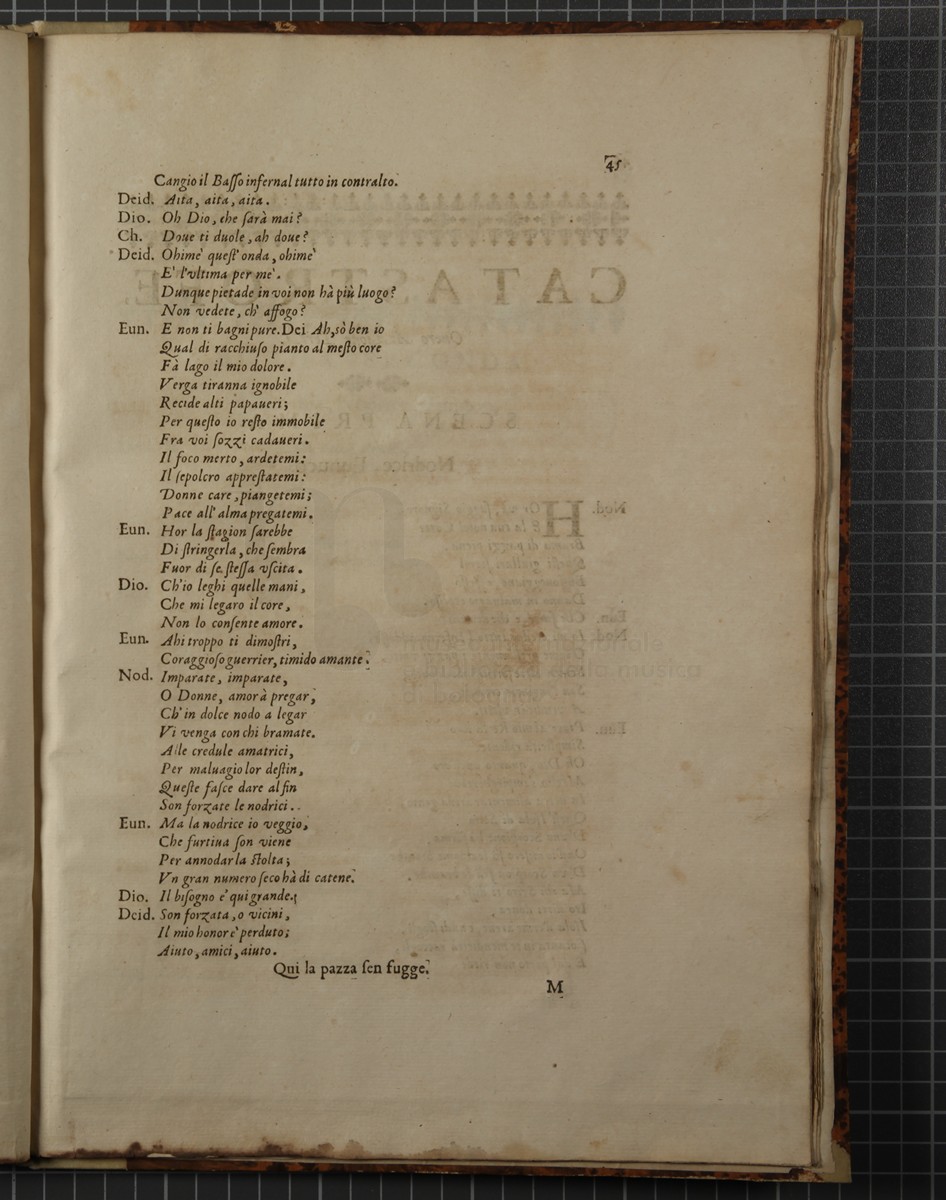 45
Cangio il Baſſo infernal tutto in contralto.
Deid. Aita, aita, aita.
Dio. Oh Dio, che ſarà mai?
Ch. Doue ti duole, ah doue?
Deid. Ohime' queſt' onda, ohime'
E' l'vltima per me'.
Dunque pietade in voi non hà più luogo?
Non vedete, ch' affogo?
Eun. E non ti bagni pure. Dei Ah, sò ben io
Qual di racchiuſo pianto al meſto core
Fà lago il mio dolore.
Verga tiranna ignobile
Recide alti papaueri;
Per queſto io reſto immobile
Fra voi ſozzi cadaueri.
Il foco merto, ardetemi:
Il ſepolcro appreſtatemi:
Donne care, piangetemi;
Pace all' alma pregatemi.
Eun. Hor la ſtagion ſarebbe
Di ſtringerla, che ſembra
Fuor di ſe ſteſſa vſcita.
Dio. Ch'io leghi quelle mani,
Che mi legaro il core,
Non lo conſente amore.
Eun. Ahi troppo ti dimoſtri,
Coraggioſo guerrier, timido amante.
Nod. Imparate, imparate,
O Donne, amor à pregar,
Ch' in dolce nodo a legar
Vi venga con chi bramate.
Alle credule amatrici,
Per maluagio lor deſtin,
Queſte faſce dare al fin
Son forzate le nodrici..
Eun. Ma la nodrice io veggio,
Che furtiua ſon viene
Per annodar la ſtolta;
Vn gran numero ſeco hà di catene.
Dio. Il biſogno e' qui grande.
Deid. Son forzata, o vicini,
Il mio honor e' perduto;
Aiuto, amici, aiuto.
Qui la pazza ſen fugge.
M